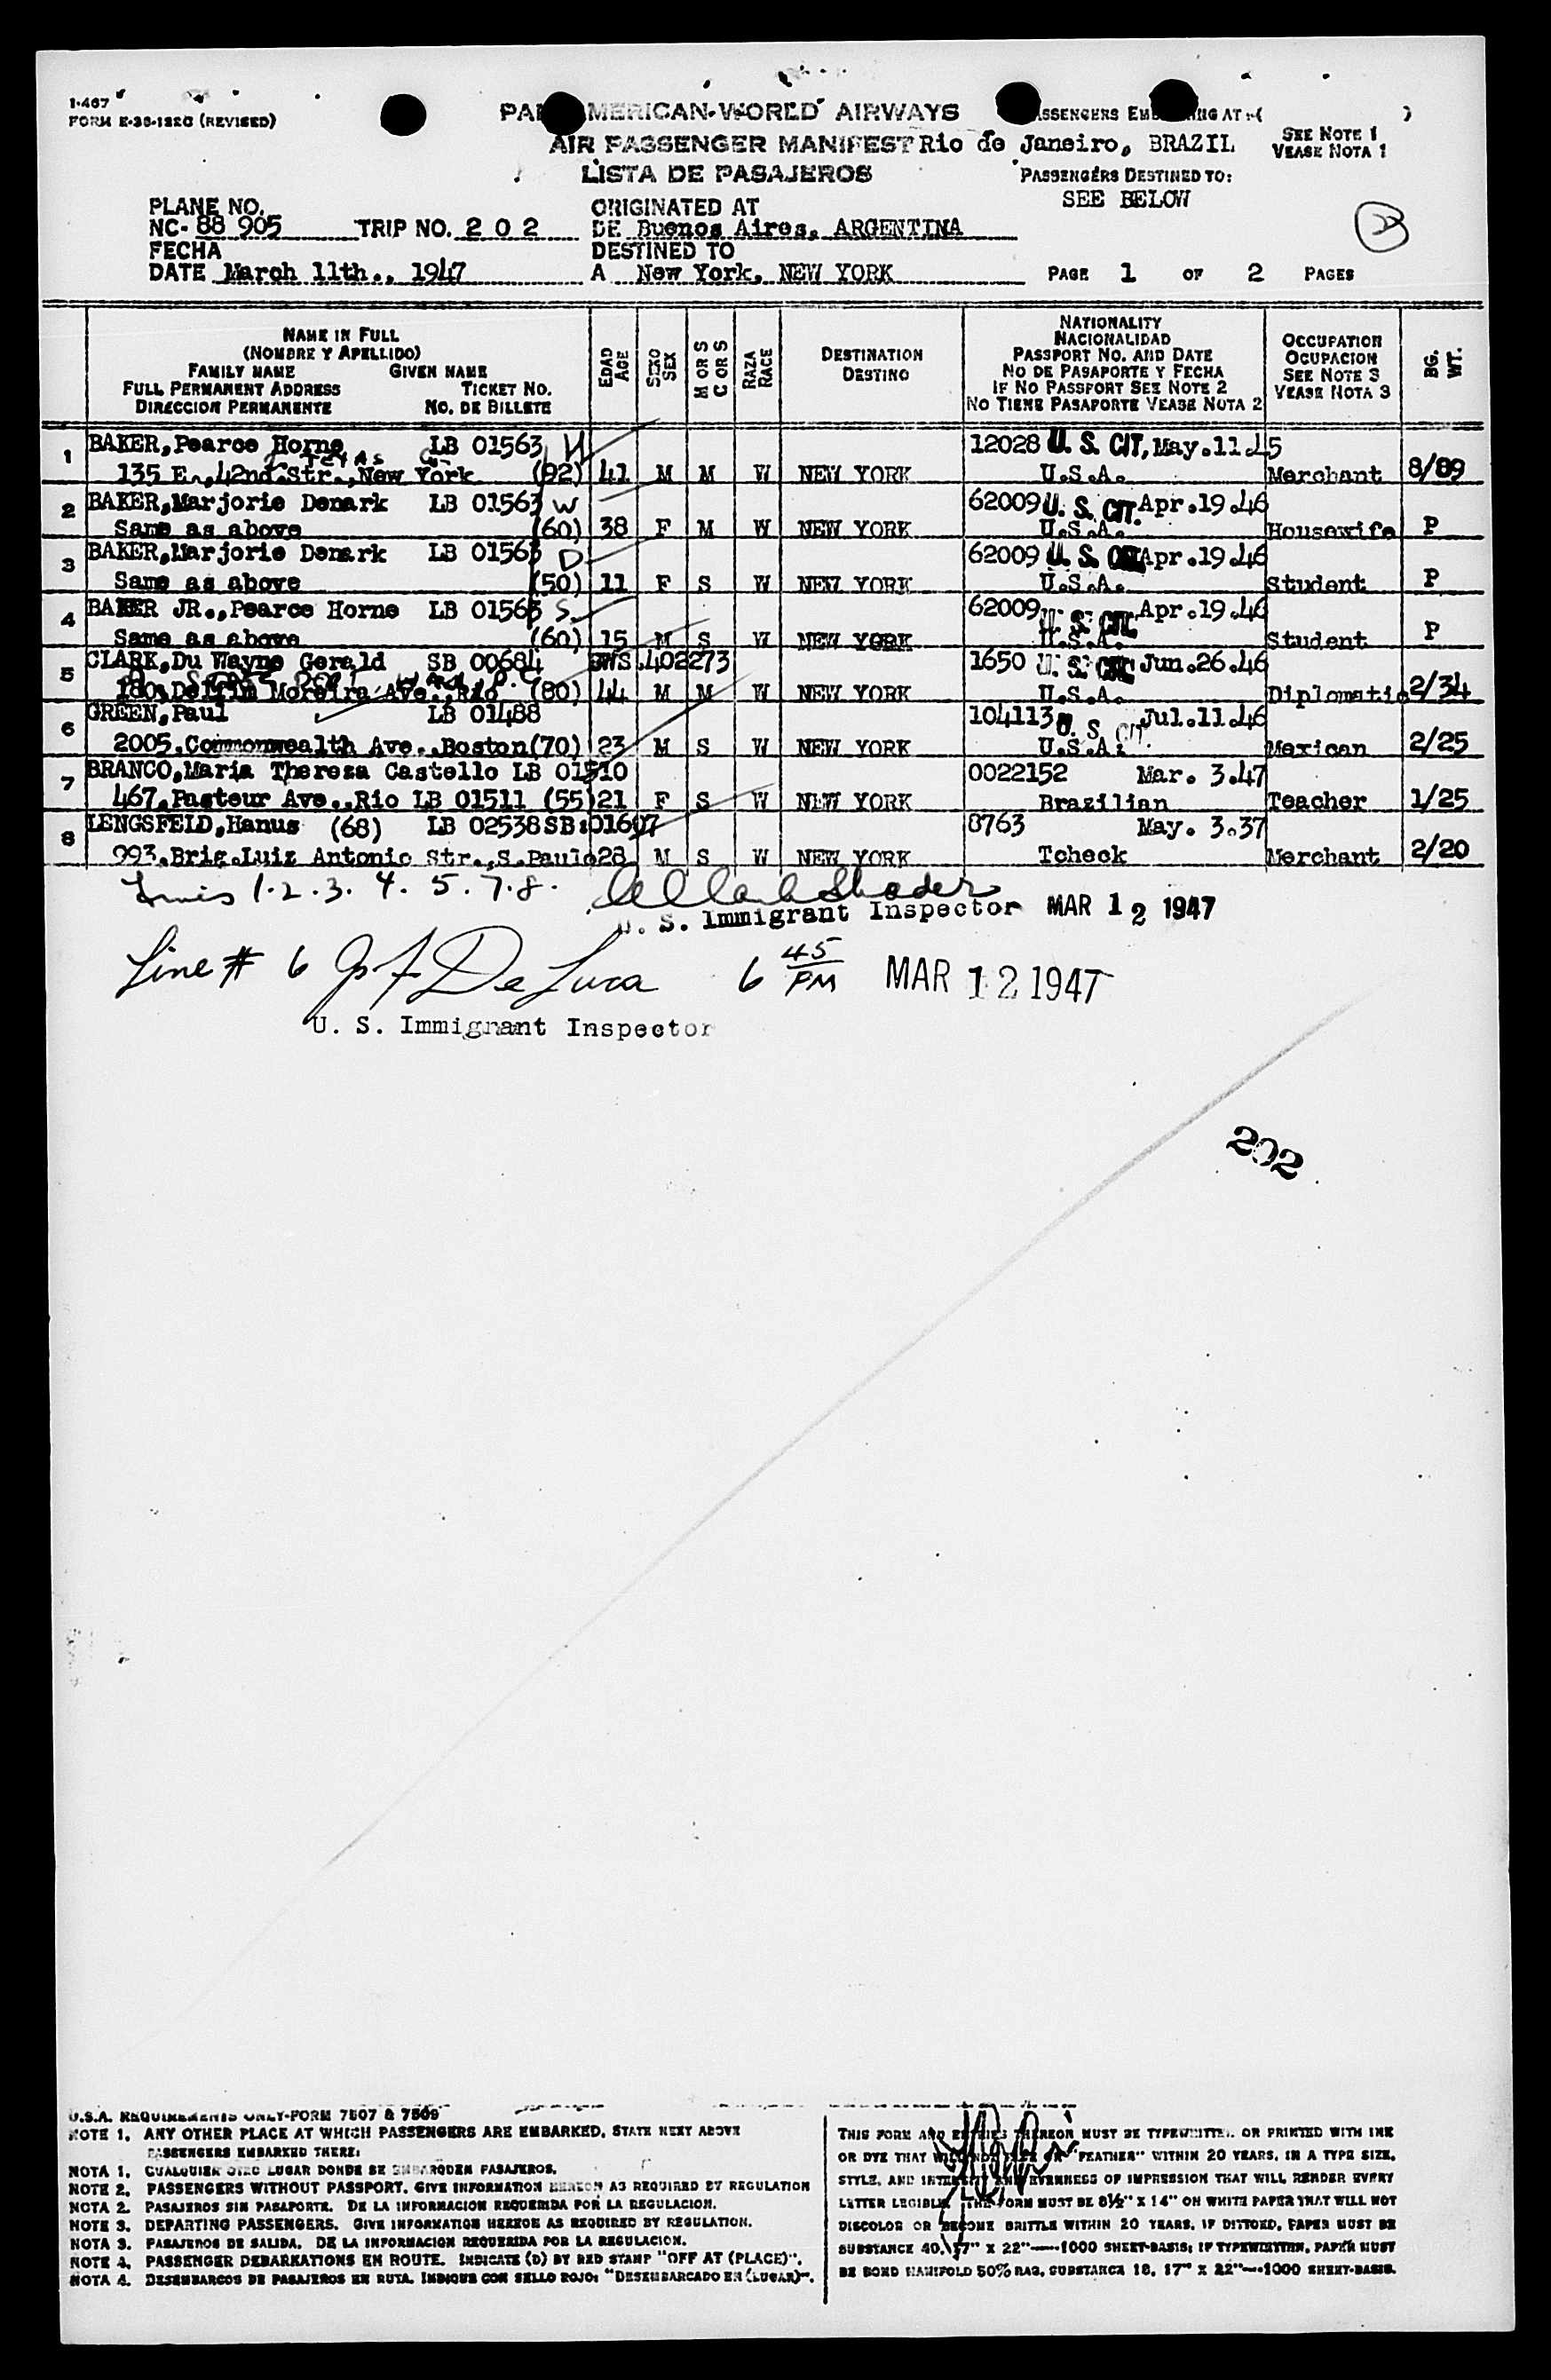 I-467
FORM E-38-132G (REVISED)
AMERICAN-WORLD AIRWAYS
AIR PASSENGER MANIFEST
LISTA DE PASAJEROS
Rio de Janeiro, BRAZIL
SEE NOTE 1
VEASE NOTA 1
PASSENGERS DESTINED TO:
SEE BELOW
PLANE NO.
NC- 88 905 TRIP NO. 2 0 2
FECHA
DATE March 11th., 1947
ORIGINATED AT
DE Buenos Aires, ARGENTINA
DESTINED TO
A New York, NEW YORK
PAGE 1 OF 2 PAGES
NAME IN FULL
(NOMBRE Y APELLIDO)
FAMILY NAME GIVEN NAME
FULL PERMANENT ADDRESS TICKET NO.
DIRECCION PERMANENTE NO. DE BILLETE
EDAD
AGE
SEXO
SEX
M OR S
C OR S
RAZA
RACE
DESTINATION
DESTINO
NATIONALITY
NACIONALIDAD
PASSPORT NO. AND DATE
NO DE PASAPORTE Y FECHA
IF NO PASSPORT SEE NOTE 2
NO TIENE PASAPORTE VEASE NOTA 2
OCCUPATION
OCUPACION
SEE NOTE 3
VEASE NOTA 3
BG.
WT.
1 BAKER, Pearce Horne LB 01563 H 12028 U. S. CIT, May.11.45
135 E., 42nd.Str., New York (92) 41 M M W NEW YORK U.S.A. Merchant 8/89
2 BAKER, Marjorie Denark LB 01563 W 62009 U. S. CIT. Apr.19.46
Same as above (60) 38 F M W NEW YORK U.S.A. Housewife P
3 BAKER, Marjorie Denark LB 01563 D 62009 U. S. CIT Apr.19.46
Same as above (50) 11 F S W NEW YORK U.S.A. Student P
4 BAKER JR., Pearce Horne LB 01563 S. 62009 U. S. CIT. Apr.19.46
Same as above (60) 15 M S W NEW YORK U.S.A. Student P
5 CLARK, Du Wayne Gerald SB 00684 GWS.402273 1650 U. S. CIT Jun.26.46
180, Delfim Moreira Ave., Rio (80) 44 M M W NEW YORK U.S.A. Diplomatic 2/34
6 GREEN, Paul LB 01488 104113 U. S. CIT. Jul.11.46
2005, Commonwealth Ave., Boston (70) 23 M S W NEW YORK U.S.A. Mexican 2/25
7 BRANCO, Maria Thereza Castello LB 01510 0022152 Mar. 3.47
467, Pasteur Ave., Rio LB 01511 (55) 21 F S W NEW YORK Brazilian Teacher 1/25
8 LENGSFELD, Hanus (68) LB 02538 SB:01607 8763 May. 3.37
993, Brig.Luiz Antonio Str., S.Paulo 28 M S W NEW YORK Tcheck Merchant 2/20
1. 2. 3. 4. 5. 7. 8.
U. S. Immigrant Inspector MAR 12 1947
Line # 6 J F De Luca 6 45 PM MAR 12 1947
U. S. Immigrant Inspector
202
U.S.A. REQUIREMENTS ONLY-FORM 7507 & 7509
NOTE 1. ANY OTHER PLACE AT WHICH PASSENGERS ARE EMBARKED, STATE NEXT ABOVE
PASSENGERS EMBARKED THERE:
NOTA 1. CUALQUIER OTRO LUGAR DONDE SE EMBARQUEN PASAJEROS.
NOTE 2. PASSENGERS WITHOUT PASSPORT. GIVE INFORMATION HEREON AS REQUIRED BY REGULATION
NOTA 2. PASAJEROS SIN PASAPORTE. DE LA INFORMACION REQUERIDA POR LA REGULACION.
NOTE 3. DEPARTING PASSENGERS. GIVE INFORMATION HEREON AS REQUIRED BY REGULATION.
NOTA 3. PASAJEROS DE SALIDA. DE LA INFORMACION REQUERIDA POR LA REGULACION.
NOTE 4. PASSENGER DEBARKATIONS EN ROUTE. INDICATE (D) BY RED STAMP "OFF AT (PLACE)".
NOTA 4. DESEMBARCOS DE PASAJEROS EN RUTA. INDIQUE CON SELLO ROJO: "DESEMBARCADO EN (LUGAR)".
THIS FORM AND ENTRIES THEREON MUST BE TYPEWRITTEN, OR PRINTED WITH INK
OR DYE THAT WILL NOT FADE OR "FEATHER" WITHIN 20 YEARS, IN A TYPE SIZE,
STYLE, AND INTENSITY AND EVENNESS OF IMPRESSION THAT WILL RENDER EVERY
LETTER LEGIBLE. THE FORM MUST BE 8½" X 14" ON WHITE PAPER THAT WILL NOT
DISCOLOR OR BECOME BRITTLE WITHIN 20 YEARS. IF DITTOED, PAPER MUST BE
SUBSTANCE 40, 17" X 22"—1000 SHEET-BASIS; IF TYPEWRITTEN, PAPER MUST
BE BOND MANIFOLD 50% RAG, SUBSTANCE 18, 17" X 22"—1000 SHEET-BASIS.